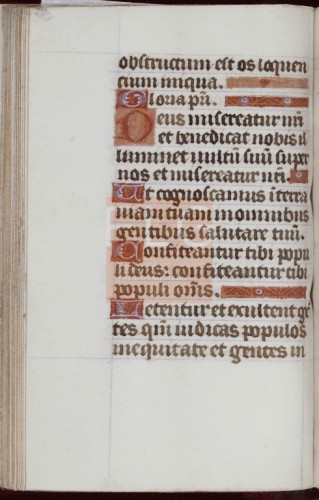 obstructum est os loquen
tium iniqua.
Gloria pri.
Deus misereatur nri
et benedicat nobis il
luminet vultu suu super
nos et misereatur nri.
Ut cognoscamus i terra
uiam tuam in omnibus
gentibus salutare tuu.
Confiteantur tibi popu
li deus: confiteantur tibi
populi oms.
Letentur et exultent ge
tes qm iudicas populos
in equitate et gentes in